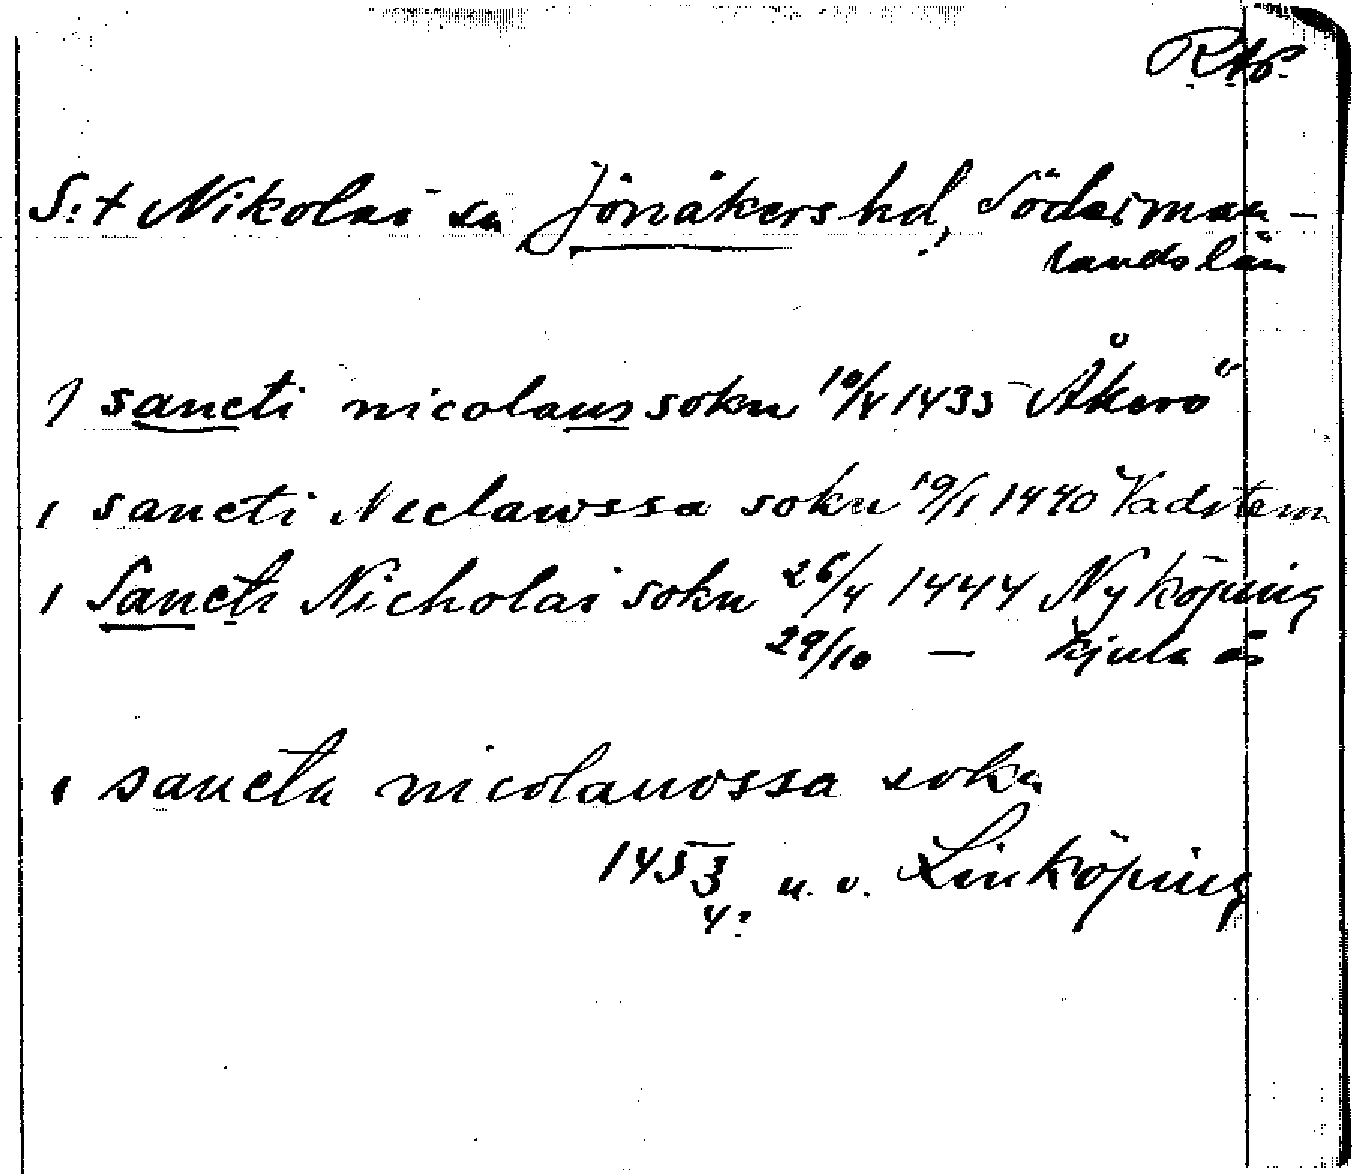 RAp.
S:t Nikolai sn Jönåkers hd, Söderman-
lands län
J sancti nicolaus sokn 10/8 1435 Åkerö
i sancti Neclawssa sokn 19/1 1440 Vadstena
i Sancti Nicholai sokn 26/4 1444 Nyköping
29/10 — Kjula ås
i sancta nicolauossa sokn
1453 u. o. Linköping
4: